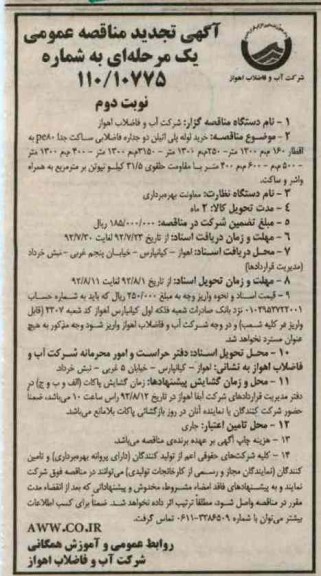 آگهی تجدید مناقصه عمومی
یک مرحله‌ای به شماره
۱۱۰/۱۰۷۷۵
شرکت آب و فاضلاب اهواز
نوبت دوم
۱ - نام دستگاه مناقصه گزار: شرکت آب و فاضلاب اهواز
۲ - موضوع مناقصه: خرید لوله پلی اتیلن دو جداره فاضلابی ساکت جدا pe۸۰ به
اقطار ۱۶۰ م‌م ۱۳۰۰ متر - ۲۵۰م‌م ۱۳۰۰ متر - ۳۱۵م‌م ۱۳۰۰ متر - ۴۰۰ م‌م ۱۳۰۰ متر
- ۵۰۰ م‌م - ۶۰۰ م‌م ۴۰۰ متر با مقاومت حلقوی ۳۱/۵ کیلو نیوتن بر مترمربع به همراه
واشر و ساکت.
۳ - نام دستگاه نظارت: معاونت بهره‌برداری
۴ - مدت تحویل کالا: ۲ ماه
۵ - مبلغ تضمین شرکت در مناقصه: ۱۸۵/۰۰۰/۰۰۰ ریال
۶ - مهلت و زمان دریافت اسناد: از تاریخ ۹۲/۷/۲۳ لغایت ۹۲/۷/۳۰
۷ - محل دریافت اسناد: اهواز - کیانپارس - خیابان پنجم غربی - نبش خرداد
(مدیریت قراردادها)
۸ - مهلت و زمان تحویل اسناد: از تاریخ ۹۲/۸/۱ لغایت ۹۲/۸/۱۱
۹ - قیمت اسناد و نحوه واریز وجه به مبلغ ۲۵۰/۰۰۰ ریال که باید به شماره حساب
نزد بانک صادرات شعبه فلکه اول کیانپارس اهواز کد شعبه ۳۳۰۷ (قابل
واریز در کلیه شعب) و در وجه شرکت آب و فاضلاب اهواز واریز شود وجه مذکور به هیچ
عنوان مسترد نخواهد شد.
۱۰ - محل تحویل اسناد: دفتر حراست و امور محرمانه شرکت آب و
فاضلاب اهواز به نشانی: اهواز - کیانپارس - خیابان ۵ غربی - نبش خرداد
۱۱ - محل و زمان گشایش پیشنهادها: زمان گشایش پاکات (الف و ب و ج) در
دفتر مدیریت قراردادهای شرکت آبفا اهواز در تاریخ ۹۲/۸/۱۲ راس ساعت ۱۰ می‌باشد، ضمناً
حضور شرکت کنندگان یا نماینده آنان در روز بازگشائی پاکات بلامانع می‌باشد.
۱۲ - محل تامین اعتبار: جاری
۱۳ - هزینه چاپ آگهی بر عهده برنده‌ی مناقصه می‌باشد.
۱۴ - کلیه شرکت‌های حقوقی اعم از تولید کنندگان (دارای پروانه بهره‌برداری) و تامین
کنندگان (نمایندگان مجاز و رسمی از کارخانجات تولیدی) می‌توانند در مناقصه فوق شرکت
نمایند و به پیشنهادهای فاقد امضاء مشروط، مخدوش و پیشنهاداتی که بعد از انقضاء مدت
مقرر در مناقصه واصل شود، مطلقاً ترتیب اثر داده نخواهد شد. ضمناً برای کسب اطلاعات
بیشتر می‌توان با شماره ۳۳۸۶۵۰۹-۰۶۱۱ تماس گرفت.
AWW.CO.IR
روابط عمومی و آموزش همگانی
شرکت آب و فاضلاب اهواز